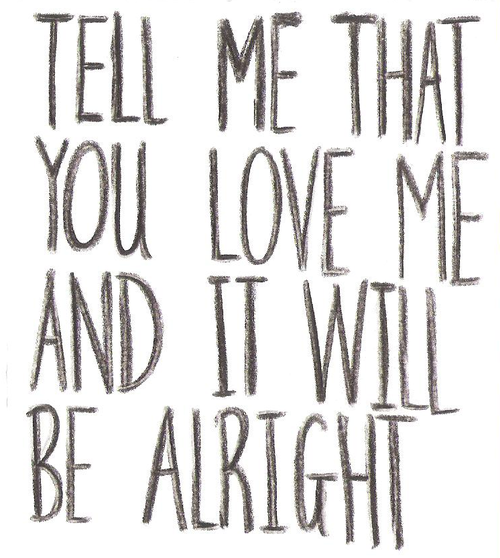 TELL ME THAT
YOU LOVE ME
AND IT WILL
BE ALRIGHT